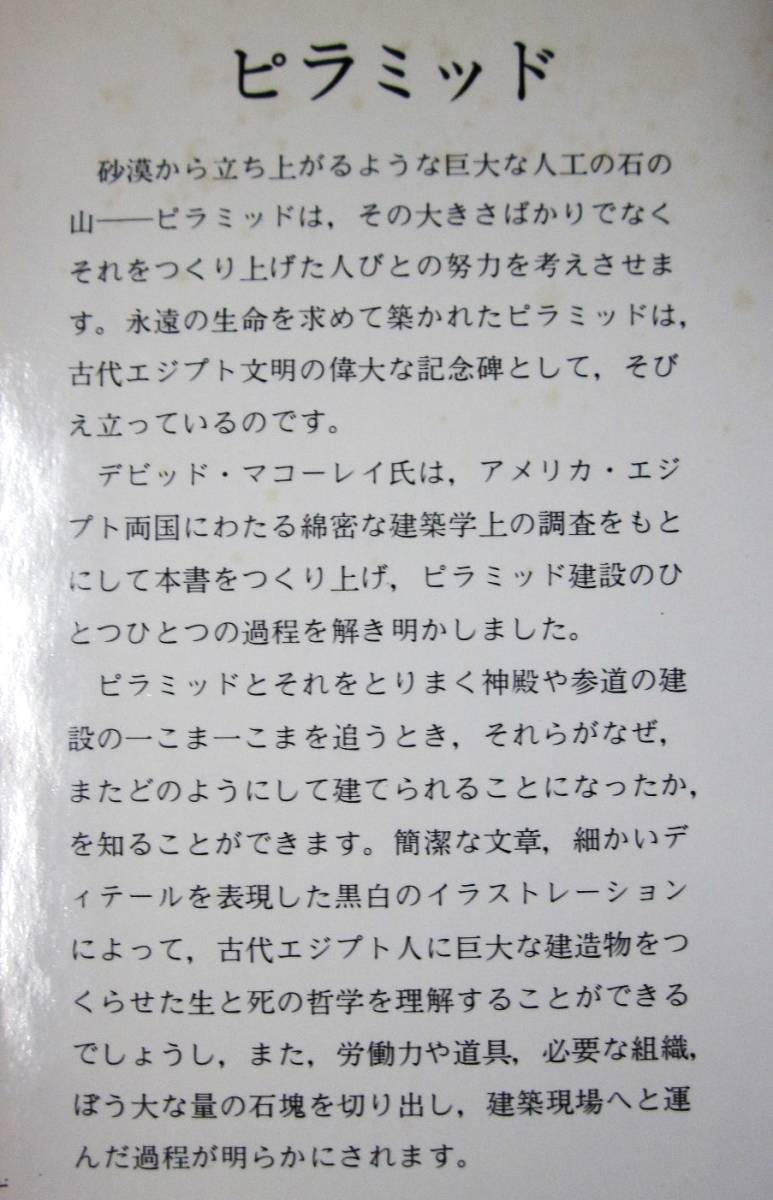 ピラミッド
砂漠から立ち上がるような巨大な人工の石の
山――ピラミッドは，その大きさばかりでなく
それをつくり上げた人びとの努力を考えさせま
す。永遠の生命を求めて築かれたピラミッドは，
古代エジプト文明の偉大な記念碑として，そび
え立っているのです。
デビッド・マコーレイ氏は，アメリカ・エジ
プト両国にわたる綿密な建築学上の調査をもと
にして本書をつくり上げ，ピラミッド建設のひ
とつひとつの過程を解き明かしました。
ピラミッドとそれをとりまく神殿や参道の建
設の一こま一こまを追うとき，それらがなぜ，
またどのようにして建てられることになったか，
を知ることができます。簡潔な文章，細かいデ
ィテールを表現した黒白のイラストレーション
によって，古代エジプト人に巨大な建造物をつ
くらせた生と死の哲学を理解することができる
でしょうし，また，労働力や道具，必要な組織，
ぼう大な量の石塊を切り出し，建築現場へと運
んだ過程が明らかにされます。